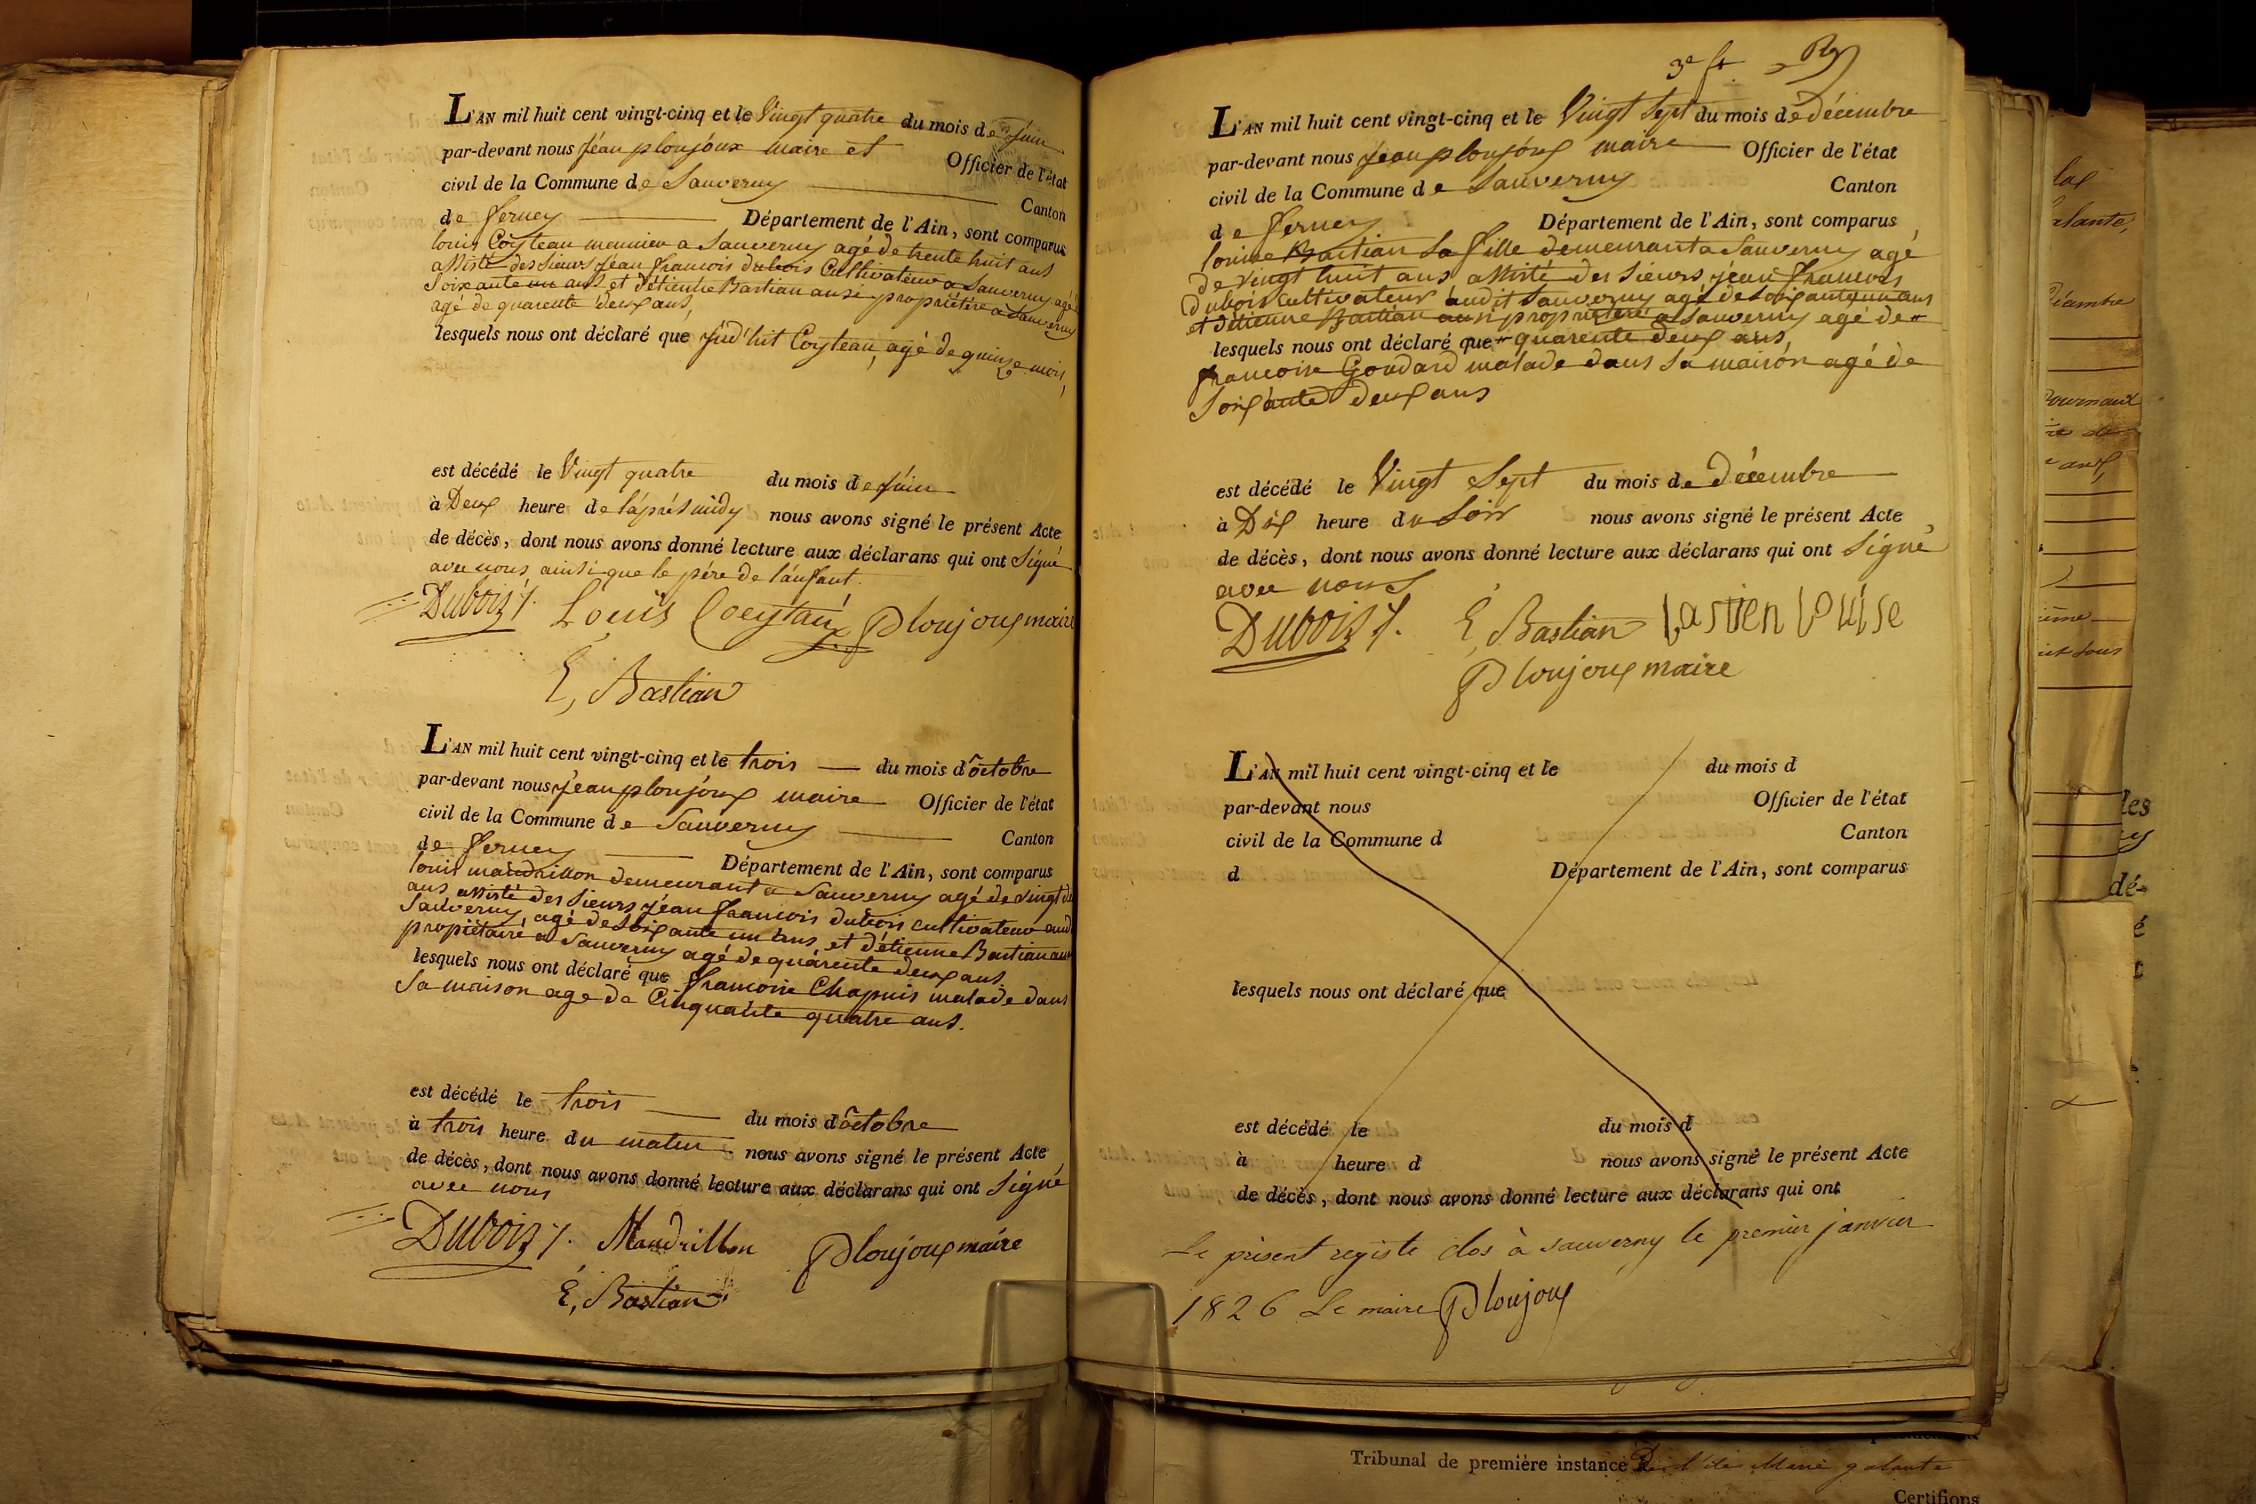 L'AN mil huit cent vingt-cinq et le Vingt quatre du mois de juin
par-devant nous jéan ploujoux maire et Officier de l'état
civil de la Commune de Sauverny Canton
de ferney Département de l'Ain, sont comparus
louis Coyteau meunier a Sauverny agé de trente huit ans
assisté des Sieurs jéan francois dubois Cultivateur a Sauverny agé
Soixante un ans et d'étienne Bastian ausi propriétére a Sauverny
agé de quarente deux ans,
lesquels nous ont déclaré que jud'hit Coyteau, agé de quinze mois,
est décédé le Vingt quatre du mois de juin
à Deux heure de l'aprés midy nous avons signé le présent Acte
de décès, dont nous avons donné lecture aux déclarans qui ont Signé
avec nous ainsi que le pére de l'anfant.
Dubois Louis Coeytau Ploujoux maire
E, Bastian
L'AN mil huit cent vingt-cinq et le trois du mois d'octobre
par-devant nous jéan ploujoux maire Officier de l'état
civil de la Commune de Sauverny Canton
de ferney Département de l'Ain, sont comparus
louis mandrillon demeurant a Sauverny agé de vingt
ans assisté des Sieurs jéan francois dubois cultivateur
Sauverny, agé de Soixante un ans, et d'étienne Bastian
propiétaire a Sauverny agé de quarente deux ans.
lesquels nous ont déclaré que francoise Chapuis malade dans
Sa maison age de Cinquante quatre ans.
est décédé le trois du mois d'octobre
à trois heure du matin nous avons signé le présent Acte
de décès, dont nous avons donné lecture aux déclarans qui ont Signé
avec nous
Dubois Mandrillon Ploujoux maire
E, Bastian
3e ft
L'AN mil huit cent vingt-cinq et le Vingt Sept du mois de décembre
par-devant nous jéan ploujoux maire Officier de l'état
civil de la Commune de Sauverny Canton
de ferney Département de l'Ain, sont comparus
louise Bastian Sa fille demeurant a Sauverny agé
de vingt huit ans assisté des Sieurs jéan francois
Dubois cultivateur audit Sauverny agé de Soixante un ans
et d'étienne Bastian ausi propriétére a Sauverny agé de
lesquels nous ont déclaré que quarente deux ans,
francoise Goudard malade dans Sa maison agé de
Soixante deux ans
est décédé le Vingt Sept du mois de Décembre
à Dix heure du Soir nous avons signé le présent Acte
de décès, dont nous avons donné lecture aux déclarans qui ont Signé
avec nous
Dubois E, Bastian bastien Louise
Ploujoux maire
L'AN mil huit cent vingt-cinq et le du mois d
par-devant nous Officier de l'état
civil de la Commune d Canton
d Département de l'Ain, sont comparus
lesquels nous ont déclaré que
est décédé le du mois d
à heure d nous avons signé le présent Acte
de décès, dont nous avons donné lecture aux déclarans qui ont
Le présent registe clos à sauverny le premier janvier
1826 Le maire Ploujoux
Tribunal de première instance
Certifions